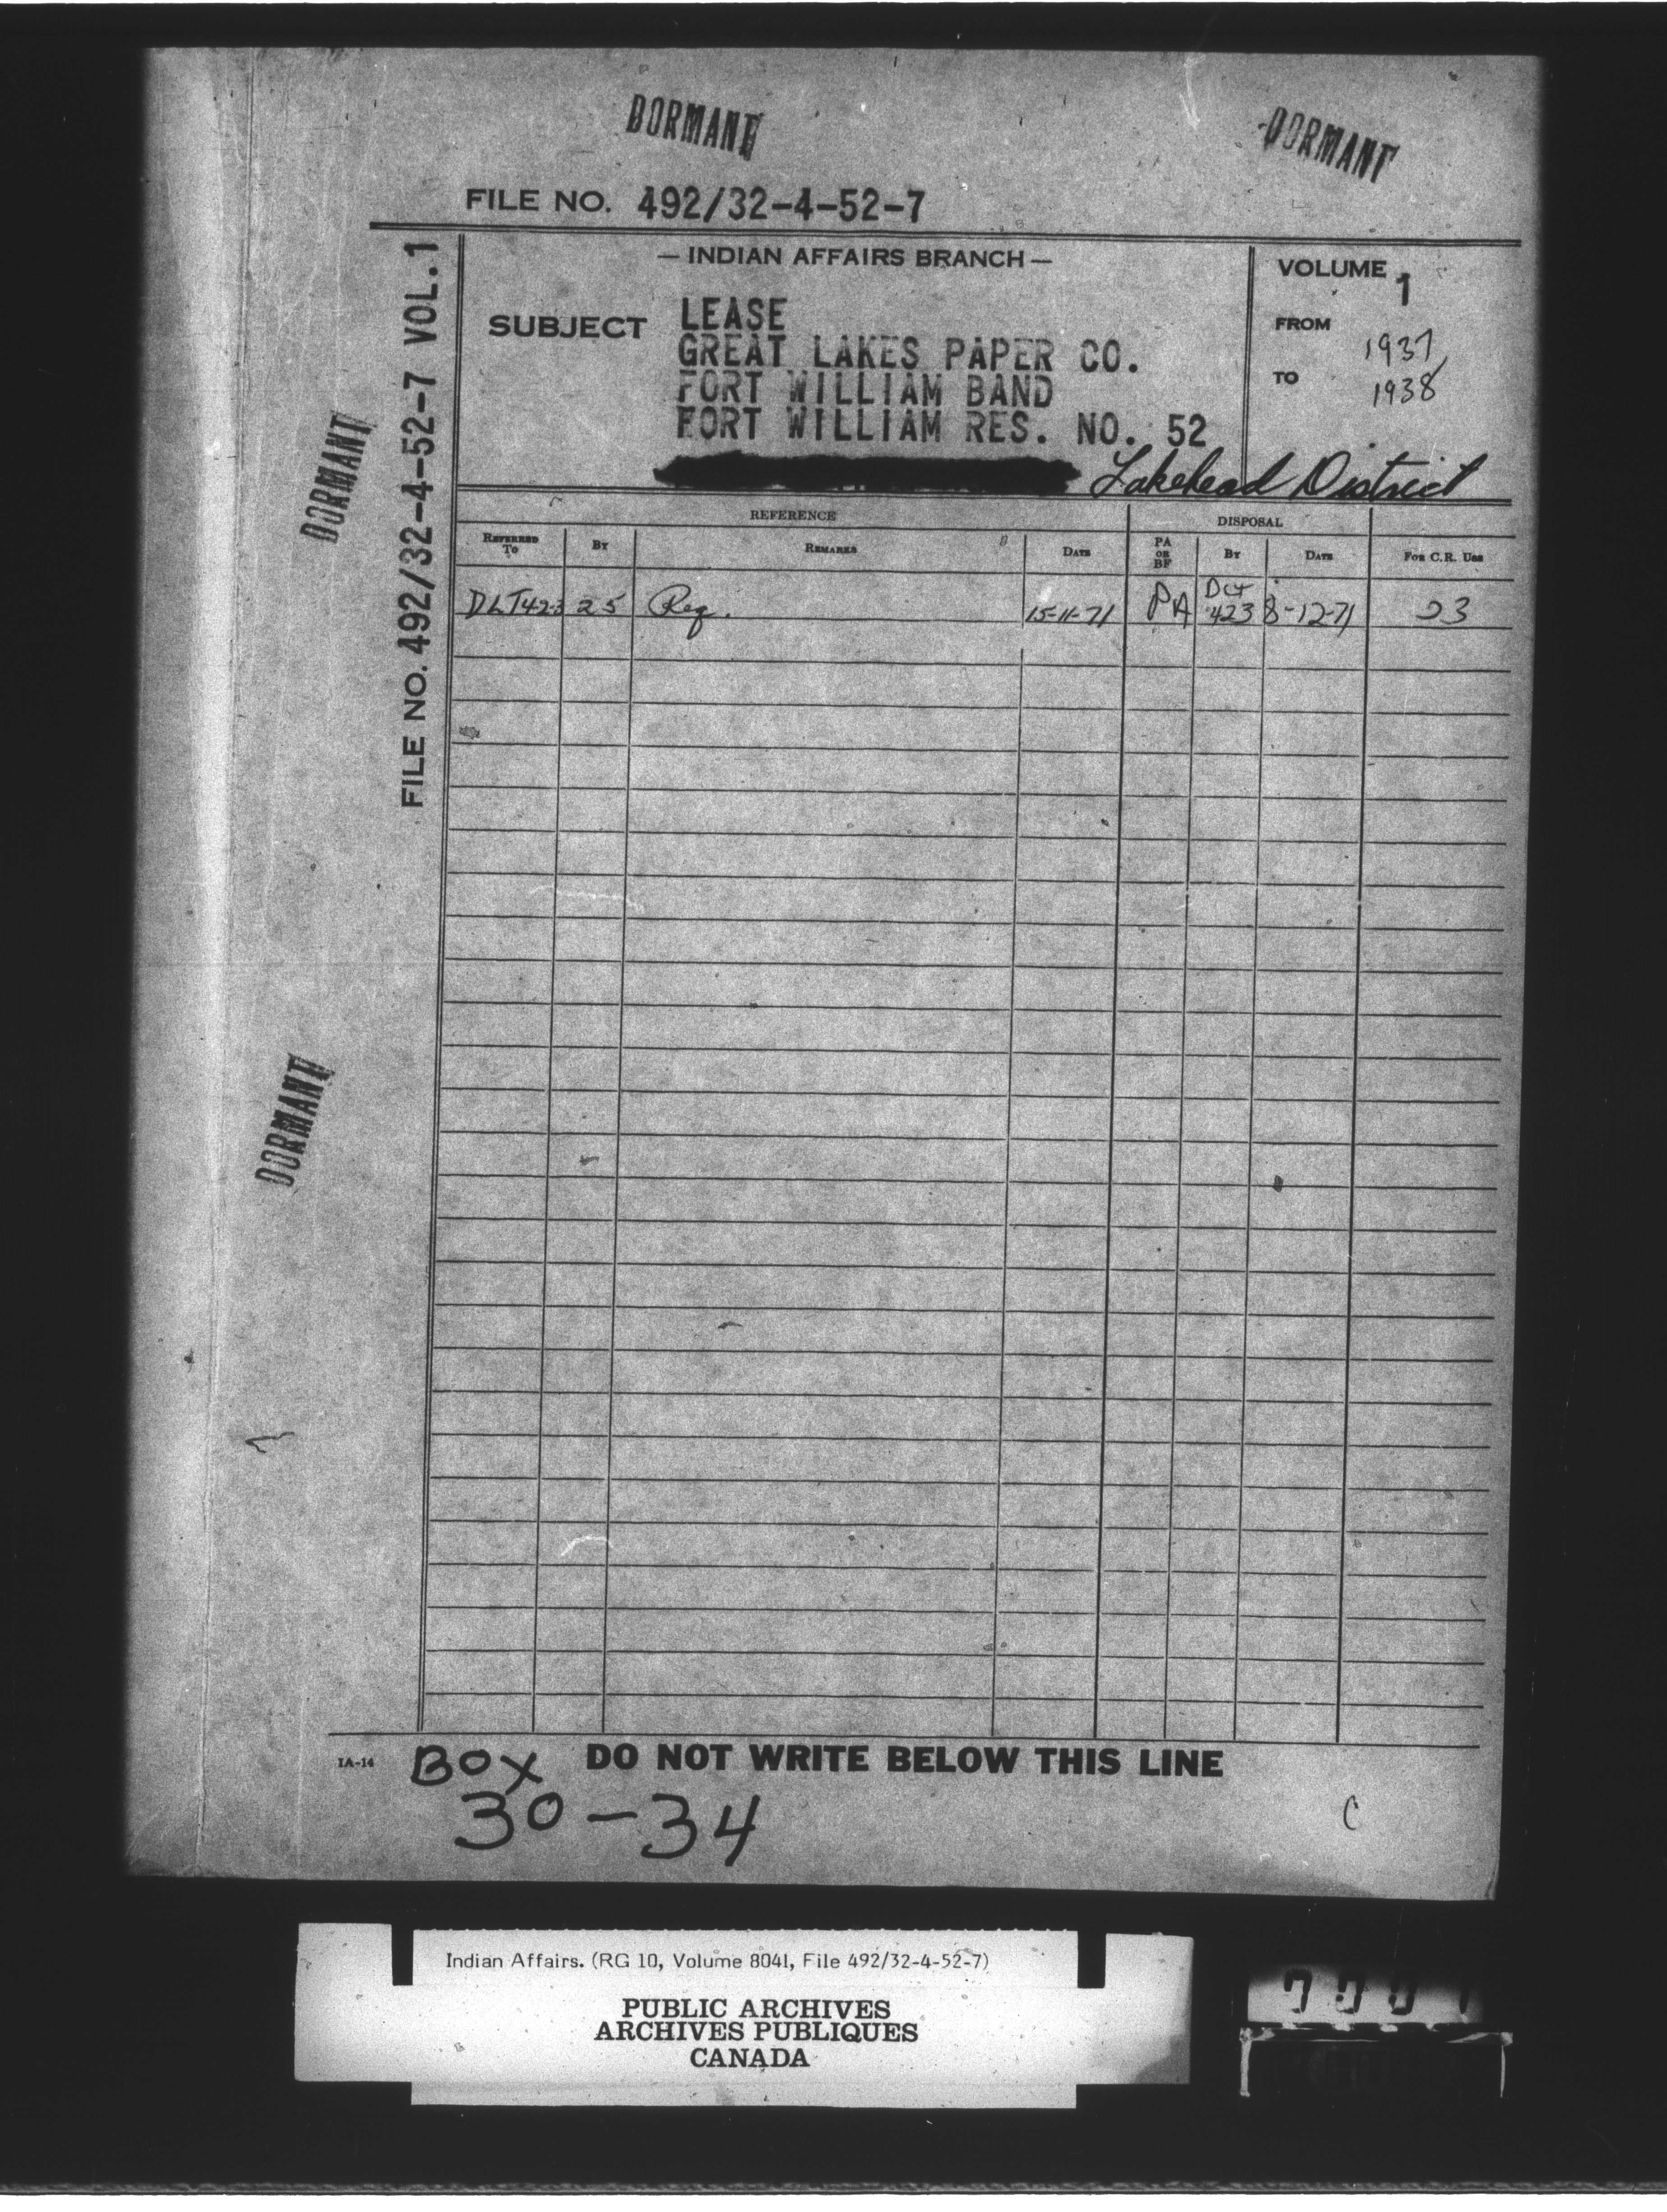 DORMANT
DORMANT
FILE NO. 492/32-4-52-7
FILE NO. 492/32-4-52-7 VOL.1
— INDIAN AFFAIRS BRANCH —
SUBJECT
LEASE
GREAT LAKES PAPER CO.
FORT WILLIAM BAND
FORT WILLIAM RES. NO. 52
Lakehead District
VOLUME 1
FROM 1937
TO 1938
DORMANT
DORMANT
REFERENCE DISPOSAL
REFERRED TO BY REMARKS DATE PA OR BF BY DATE FOR C.R. USE
DLT423 25 Req. 15-11-71 PA 423 8-12-71 23
IA-14 BOX DO NOT WRITE BELOW THIS LINE
30-34
C
Indian Affairs. (RG 10, Volume 8041, File 492/32-4-52-7)
PUBLIC ARCHIVES
ARCHIVES PUBLIQUES
CANADA